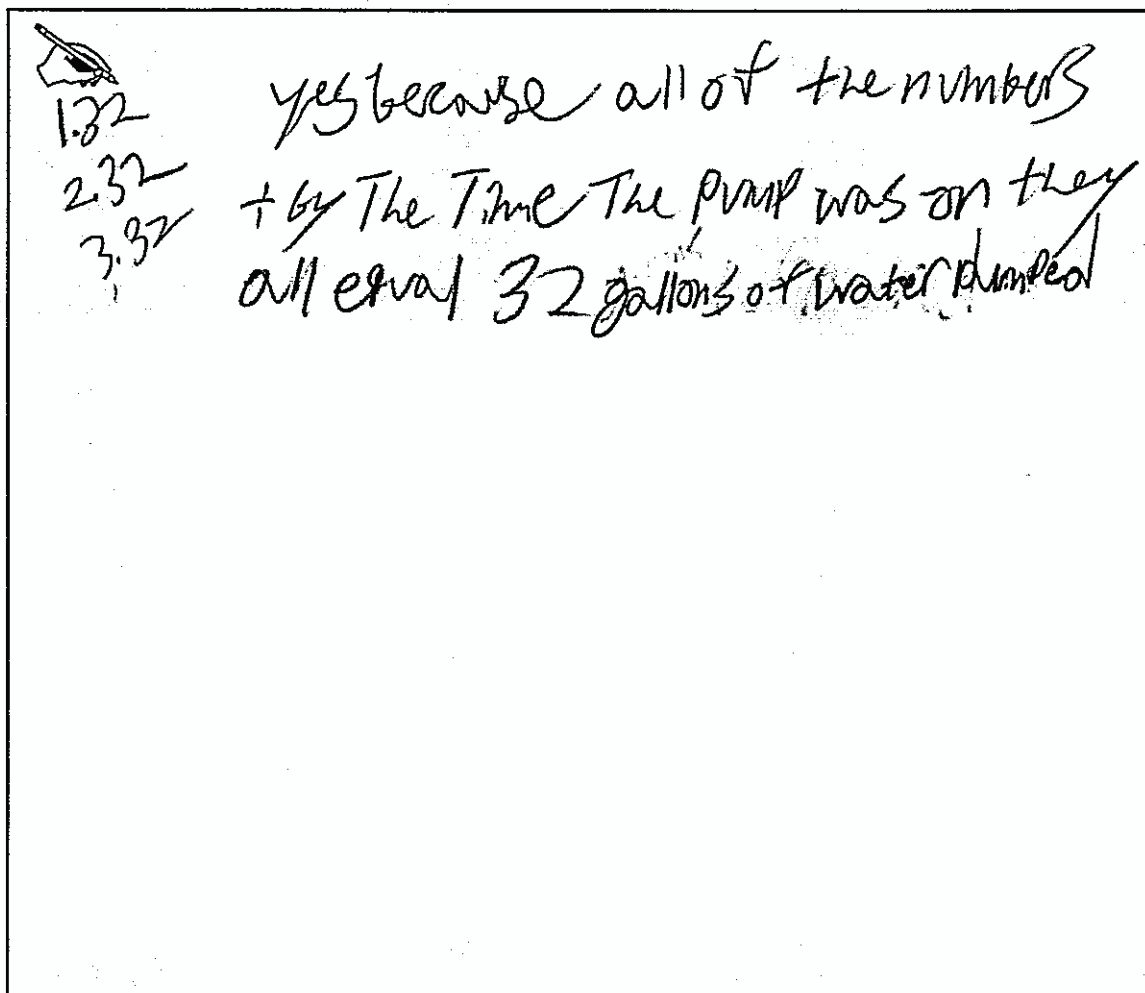 1.32
2.32
3.32
yes because all of the numbers
÷ by The Time The pump was on they
all equal 32 gallons of water pumped